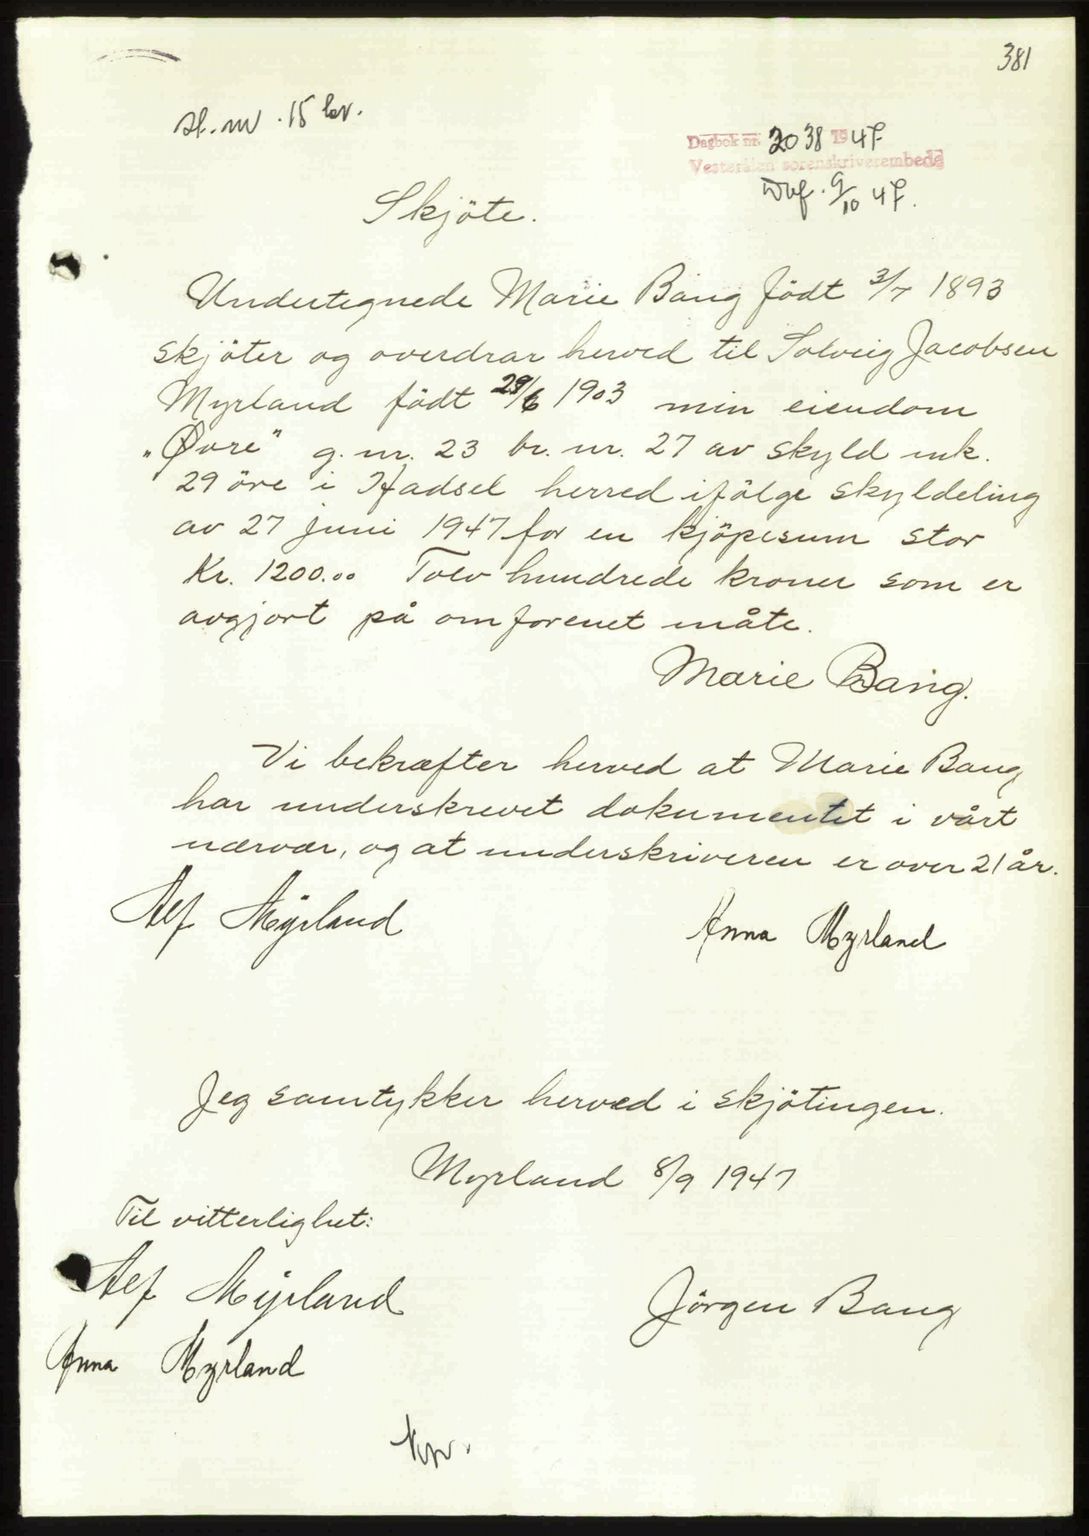 381
st.m. 15 kr.
Dagbok nr. 2038 1947
Vesterålen sorenskriverembede
9/10 47.
Skjöte.
Undertegnede Marie Bang född 3/7 1893
skjöter og overdrar herved til Solveig Jacobsen
Myrland födt 29/6 1903 min eiendom
„Øvre" g. nr. 23 br. nr. 27 av skyld mk.
29 öre i Hadsel herred ifölge skyldeling
av 27 juni 1947 for en kjöpesum stor
Kr. 1200.00 Tolv hundrede kroner som er
avgjort på omforenet måte.
Marie Bang.
Vi bekræfter herved at Marie Bang
har underskrevet dokumentet i vårt
nærvær, og at underskriveren er over 21 år.
Alf Myrland
Anna Myrland
Jeg samtykker herved i skjötingen.
Myrland 8/9 1947
Til vitterlighet:
Alf Myrland
Jörgen Bang
Anna Myrland